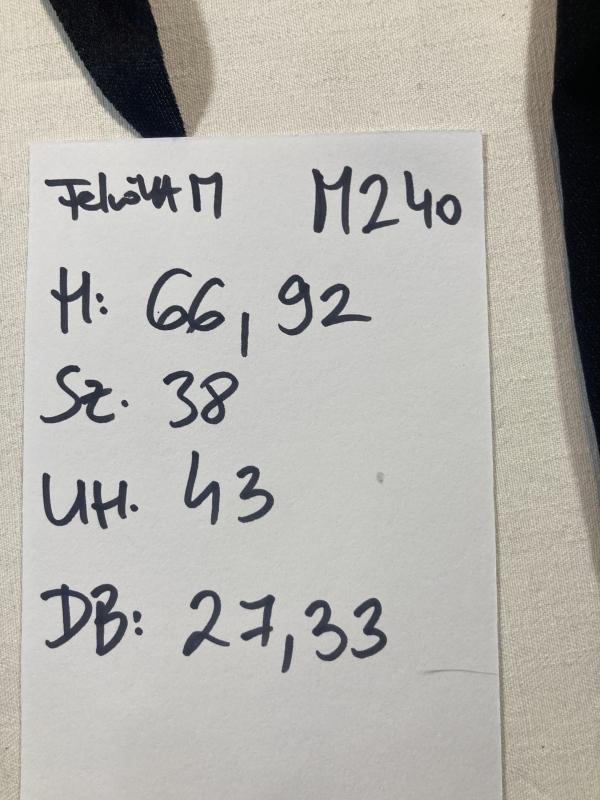 Felvőtt M M240
H: 66, 92
Sz. 38
UH. 43
DB: 27,33